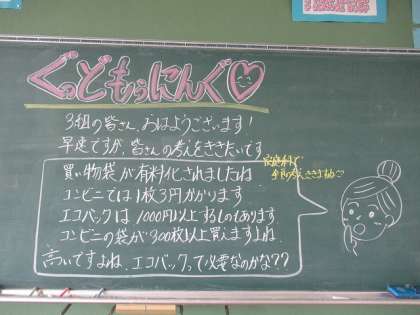 ぐっどもぅにんぐ♡
3組の皆さん、おはようございます!
早速ですが、皆さんの考えをききたいです
家庭科で
今日の考えききますね
買い物袋が有料化されましたね
コンビニでは1枚3円かかります
エコバックは1000円以上するものもあります
コンビニの袋が300枚以上買えますよね
高いですよね、エコバックって必要なのかな??